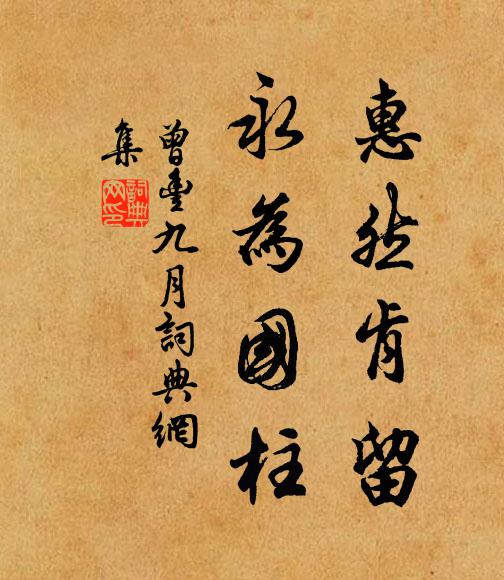 惠然肯留
永為國柱
曾豐九月詞典網
集
詞典
网印